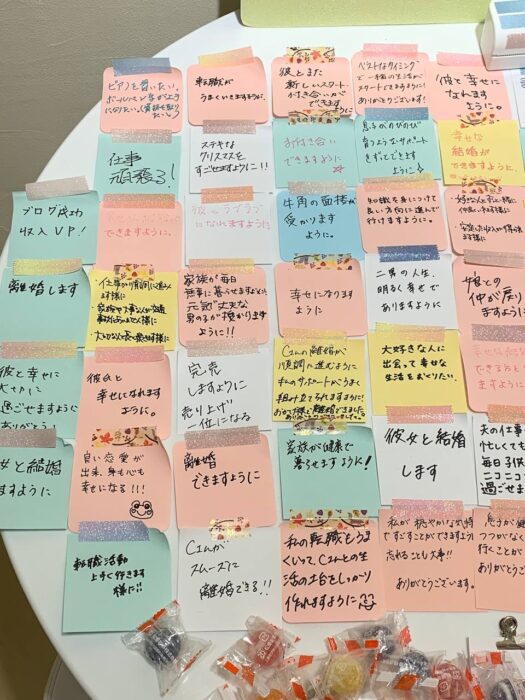 ピアノを習いたい。
転職が
うまくいきますように。
彼とまた
新しいスタート
付き合いができます
ように
ベストなタイミング
で一緒の生活が
スタートできますように!
ありがとうございます!
彼と幸せに
なれます
ように。
仕事
頑張る!
ステキな
クリスマスを
すごせますように!!
お付き合い
できますように
息子がのびのび
育つようなサポート
をずってできます
ように
幸せな
結婚が
できますように
ブログ成功
収入UP!
できますように。
彼とラブラブ
になれますように
牛角の面接が
受かります
ように。
知識を身につけて
良い方向に進んで
行けますように。
離婚します
家族が毎日
無事に暮らせますように
元気で丈夫な
男の子が授かります
ように!!
幸せになります
ように
二男の人生、
明るく幸せで
ありますように
娘との
仲が戻り
ますように
彼と幸せに
過ごせますように
ありがとう
彼氏と
幸せになれます
ように。
完売
しますように
売り上げ
一位になる
Cユんの離婚が
順調に進むように
私のサポートがうまく
組み立てられますように!
大好きな人に
出会って幸せな
生活をおくりたい。
女と結婚
ますように
良い恋愛が
出来、身も心も
幸せになる!!!
離婚
できますように
家族が健康で
暮らせますように!
彼女と結婚
します
夫の仕事
忙しくても
毎日子供
ニコニコ
過ごせま
転職活動
上手く行きます
様に!!
Cユんが
スムーズに
離婚できる!!
私の転職もうま
くいって、Cユんとの生
活の土台をしっかり
作れますように
私が穏やかな気持
ちですごすことができますよう
忘れることも大事!!
ありがとうございます。
息子が健
つつがなく
行くことが
ありがとう